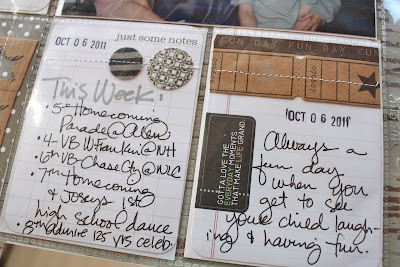 just some notes
OCT 06 2011
This Week:
• 5th Homecoming
Parade @ Allen
• 4-VB W Franken @ NH
• 6th VB-Chase City @ NLC
• 7th Homecoming
& Josey's 1st
high school dance
• 8th admire 125 yrs celeb.
FUN DAY FUN DAY FUN DAY
ADMIT ONE
OCT 06 2011
GOTTA LOVE THE
EVERYDAY MOMENTS
THAT MAKE LIFE GRAND.
Always a
fun day
when you
get to see
your child laugh-
ing & having fun.